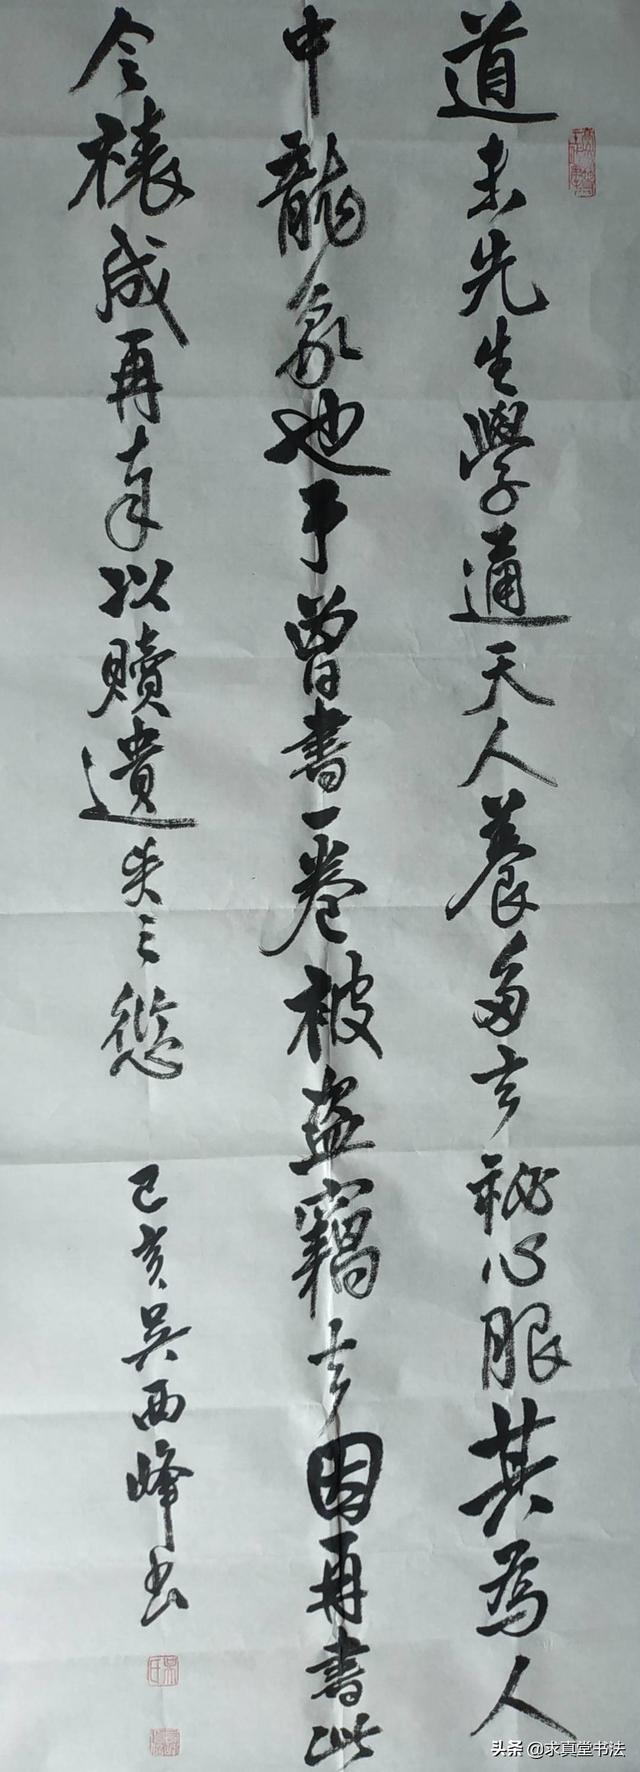 道未先生學通天人養多玄祕心服其為人
中龍象也予曾書一卷被盜竊去因再書此
令裱成再奉以贖遺失之愆 己亥吳西峰书
头条 @求真堂书法